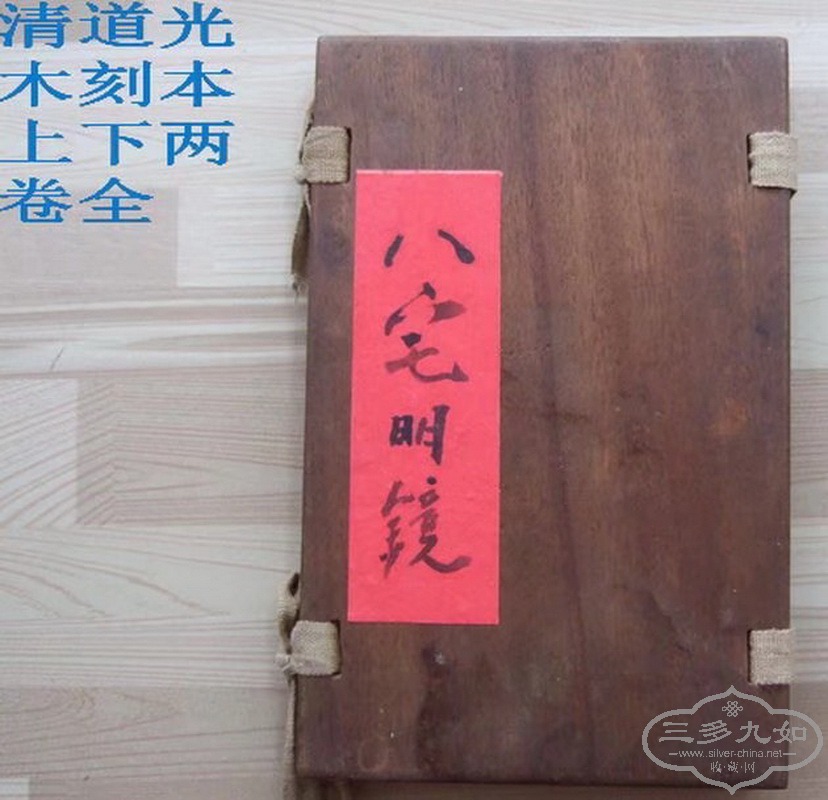 清道光
木刻本
上下两
卷全
八宅明鏡
三多九如
www.silver-china.net
收·藏·网